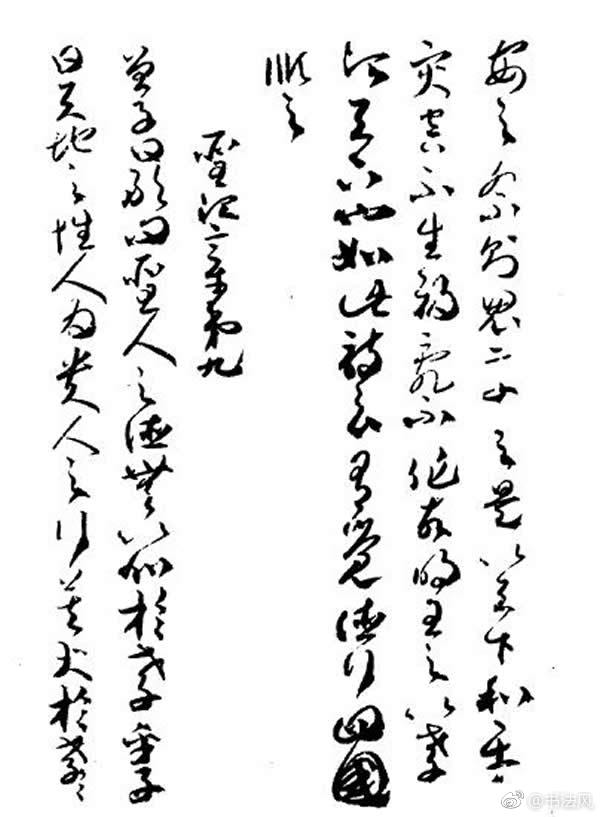 安之祭則鬼享之是以天下和平
災害不生禍亂不作故明王之以孝
治天下也如此詩云有覺德行四國
順之
聖治章第九
曾子曰敢問聖人之德無以加於孝乎子
曰天地之性人為貴人之行莫大於孝〻
@书法风